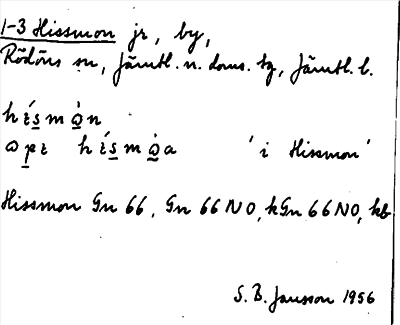 1-3 Hissmon jr, by,
Rödöns sn, Jämtl. n. doms. tg, Jämtl. l.
hɩ́smὼn
ωpɛ hɩ́smὼa 'i Hissmon'
Hissmon Gn 66, Gn 66 NO, kGn 66 NO, kb
S. B. Jansson 1956